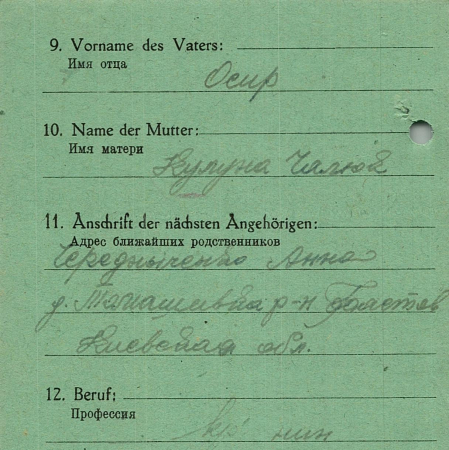 9. Vorname des Vaters:
Имя отца
Осир
10. Name der Mutter:
Имя матери
11. Anschrift der nächsten Angehörigen:
Адрес ближайших родственников
Чередныченко Анна
д. р-н Фастов
Киевская обл.
12. Beruf:
Профессия